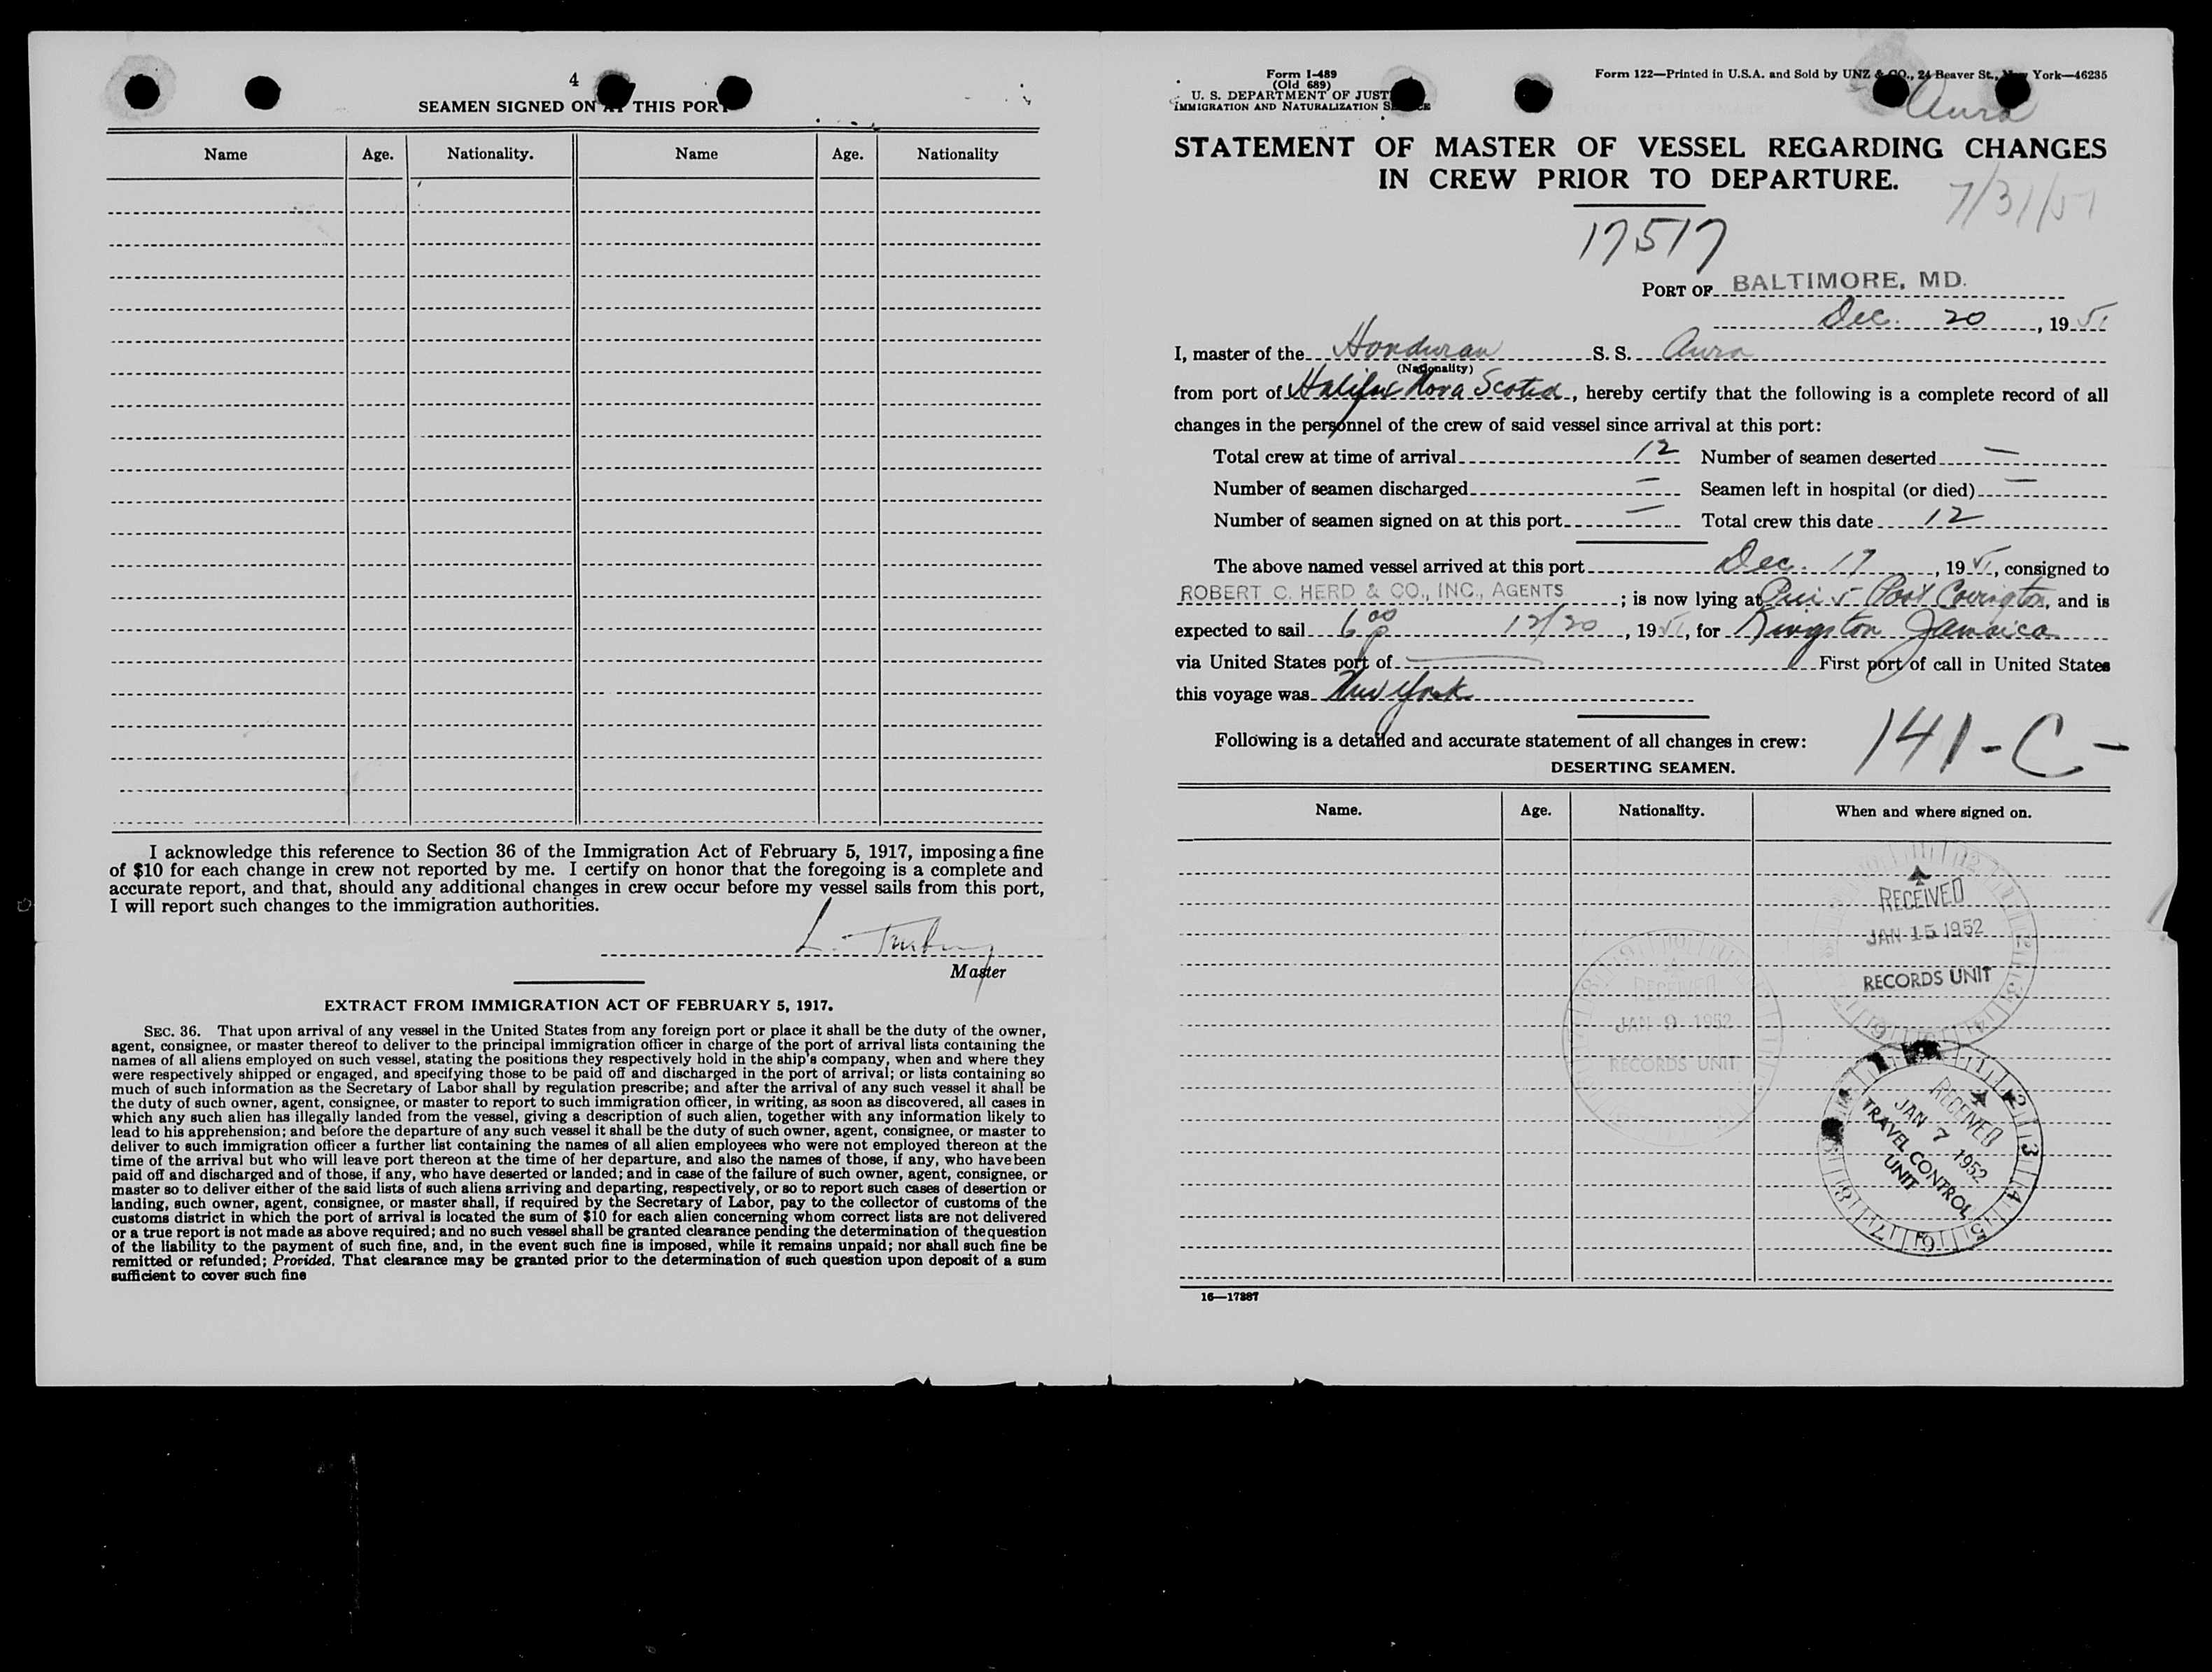 4
SEAMEN SIGNED ON AT THIS PORT
Name Age. Nationality. Name Age. Nationality
I acknowledge this reference to Section 36 of the Immigration Act of February 5, 1917, imposing a fine
of $10 for each change in crew not reported by me. I certify on honor that the foregoing is a complete and
accurate report, and that, should any additional changes in crew occur before my vessel sails from this port,
I will report such changes to the immigration authorities.
L.
Master
EXTRACT FROM IMMIGRATION ACT OF FEBRUARY 5, 1917.
SEC. 36. That upon arrival of any vessel in the United States from any foreign port or place it shall be the duty of the owner,
agent, consignee, or master thereof to deliver to the principal immigration officer in charge of the port of arrival lists containing the
names of all aliens employed on such vessel, stating the positions they respectively hold in the ship's company, when and where they
were respectively shipped or engaged, and specifying those to be paid off and discharged in the port of arrival; or lists containing so
much of such information as the Secretary of Labor shall by regulation prescribe; and after the arrival of any such vessel it shall be
the duty of such owner, agent, consignee, or master to report to such immigration officer, in writing, as soon as discovered, all cases in
which any such alien has illegally landed from the vessel, giving a description of such alien, together with any information likely to
lead to his apprehension; and before the departure of any such vessel it shall be the duty of such owner, agent, consignee, or master to
deliver to such immigration officer a further list containing the names of all alien employees who were not employed thereon at the
time of the arrival but who will leave port thereon at the time of her departure, and also the names of those, if any, who have been
paid off and discharged and of those, if any, who have deserted or landed; and in case of the failure of such owner, agent, consignee, or
master so to deliver either of the said lists of such aliens arriving and departing, respectively, or so to report such cases of desertion or
landing, such owner, agent, consignee, or master shall, if required by the Secretary of Labor, pay to the collector of customs of the
customs district in which the port of arrival is located the sum of $10 for each alien concerning whom correct lists are not delivered
or a true report is not made as above required; and no such vessel shall be granted clearance pending the determination of the question
of the liability to the payment of such fine, and, in the event such fine is imposed, while it remains unpaid; nor shall such fine be
remitted or refunded; Provided, That clearance may be granted prior to the determination of such question upon deposit of a sum
sufficient to cover such fine
Form I-489
(Old 689)
U. S. DEPARTMENT OF JUSTICE
IMMIGRATION AND NATURALIZATION SERVICE
Form 122—Printed in U.S.A. and Sold by UNZ & CO., 24 Beaver St., New York—46235
Aura
STATEMENT OF MASTER OF VESSEL REGARDING CHANGES
IN CREW PRIOR TO DEPARTURE.
7/31/51
17517
PORT OF BALTIMORE, MD.
Dec. 20, 1951
I, master of the Honduran S. S. Aura
(Nationality)
from port of Halifax Nova Scotia, hereby certify that the following is a complete record of all
changes in the personnel of the crew of said vessel since arrival at this port:
Total crew at time of arrival 12 Number of seamen deserted —
Number of seamen discharged — Seamen left in hospital (or died) —
Number of seamen signed on at this port — Total crew this date 12
The above named vessel arrived at this port Dec. 17, 1951, consigned to
ROBERT C. HERD & CO., INC., AGENTS; is now lying at Pier 5 Port Covington, and is
expected to sail 6 00 p 12/20, 1951, for Kingston Jamaica
via United States port of — First port of call in United States
this voyage was New York
Following is a detailed and accurate statement of all changes in crew:
141-C-
DESERTING SEAMEN.
Name. Age. Nationality. When and where signed on.
RECEIVED
JAN 15 1952
RECORDS UNIT
RECEIVED
JAN 9 1952
RECORDS UNIT
RECEIVED
JAN 7 1952
TRAVEL CONTROL
UNIT
16—17387